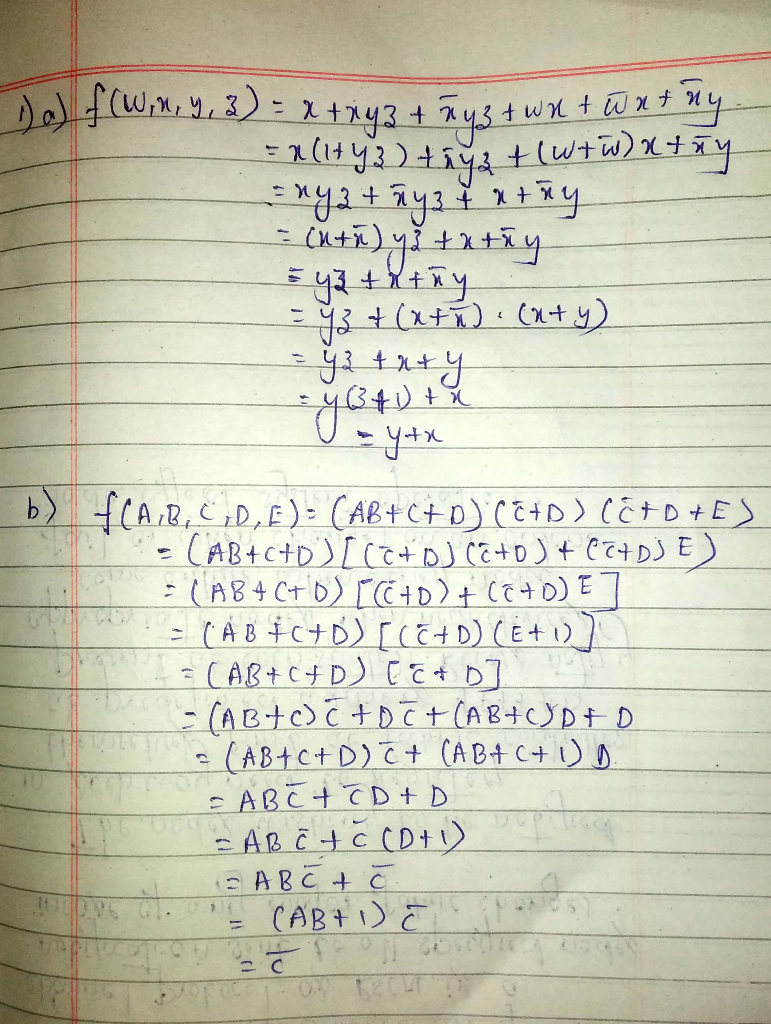 1) a) f(w,x,y,z) = x + xyz + x̄yz + wx + w̄x + x̄y
= x(1+yz) + x̄yz + (w+w̄)x + x̄y
= xyz + x̄yz + x + x̄y
= (x+x̄)yz + x + x̄y
= yz + x + x̄y
= yz + (x+x̄)·(x+y)
= yz + x + y
= y(z+1) + x
= y+x
b) f(A,B,C,D,E) = (AB+C+D)(C̄+D)(C̄+D+E)
= (AB+C+D)[(C̄+D)(C̄+D)+(C̄+D)E)
= (AB+C+D)[(C̄+D)+(C̄+D)E]
= (AB+C+D)[(C̄+D)(E+1)]
= (AB+C+D)[C̄+D]
= (AB+C)C̄+DC̄+(AB+C)D+D
= (AB+C+D)C̄+(AB+C+1)D
= ABC̄+C̄D+D
= ABC̄+C̄(D+1)
= ABC̄+C̄
= (AB+1)C̄
= C̄